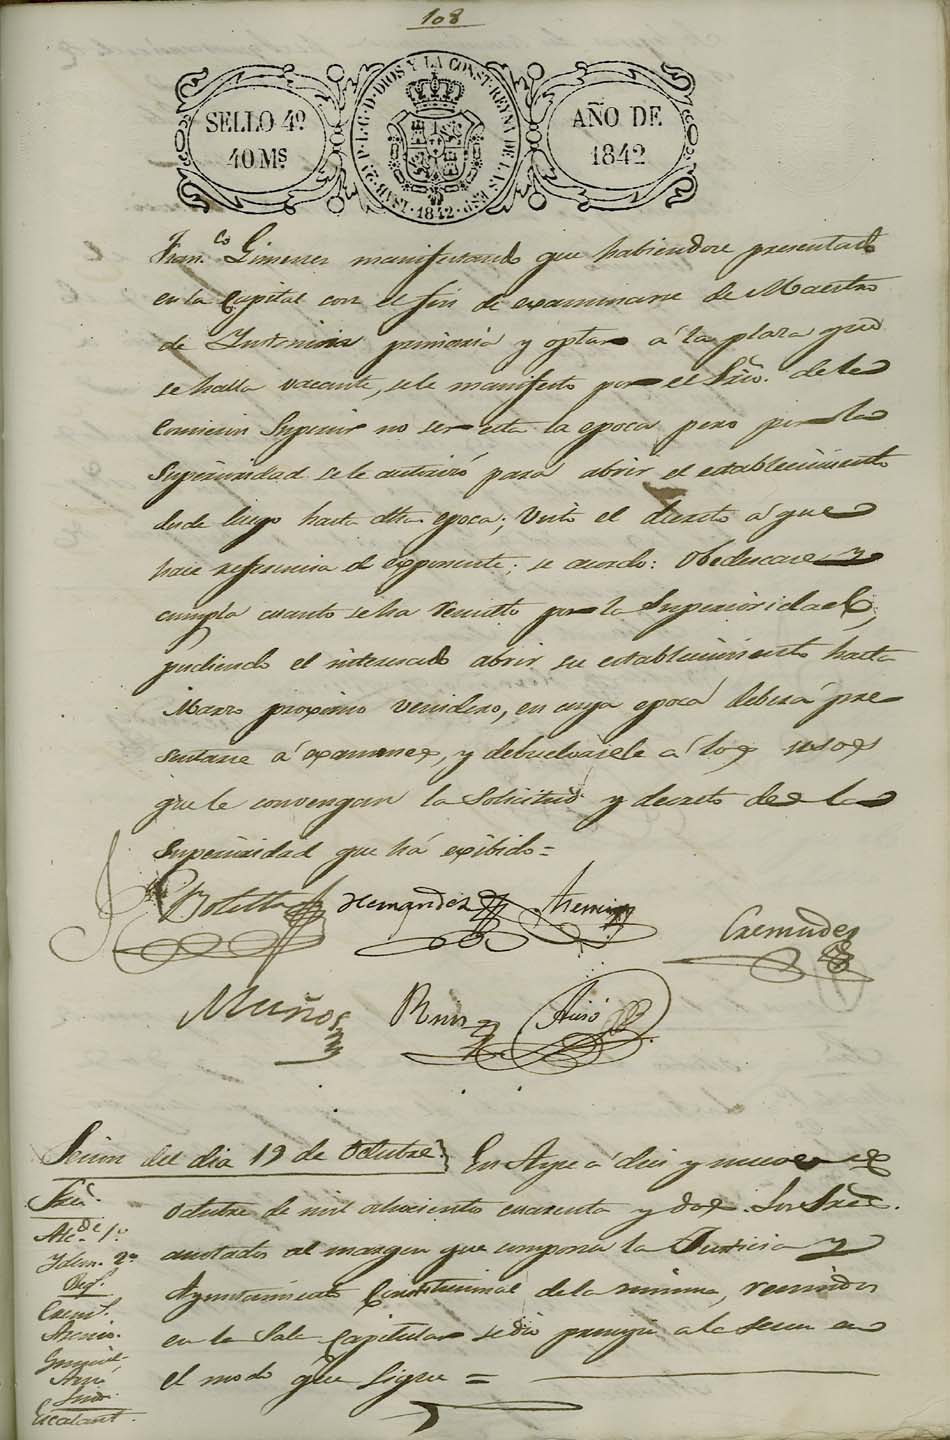 108
SELLO 4º
40 Mˢ
ISAB. 2ª P. L. G. D. DIOS Y LA CONST. REYNA DE LAS ESP. 1842
AÑO DE
1842
Fran.ᶜᵒ Gimenez manifestando que habiendose presentado
en la Capital con el fin de examinarse de Maestro
de primaria y optar á la plaza que
se halla vacante, se le manifesto por el Srio. de la
Comicion Superior no ser esta la epoca pero por la
Superioridad se le autorizó para abrir el establecimiento
desde luego hasta dha epoca; Visto el decreto á que
hace referencia el exponente; se acordo: Obedescase y
cumpla cuanto se ha por la Superioridad,
pudiendo el interesado abrir su establecimiento hasta
Marzo proximo venidero, en cuya epoca deberá pre
sentarse á examenes, y debuelvasele á los usos
que le convengan la Solicitud y decreto de la
Superioridad que há exibido =
Botella Hernandez Asensio
Cremades
Muños Ruiz
Secion del dia 19 de Octubre. En Aspe á dies y nueve de
Octubre de mil ochociento cuarenta y dos. Los Sres.
anotados al margen que compone la Justicia y
Ayuntamiento Constitucional de la misma, reunidos
en la Sala Capitular se dio principio a la secion en
el modo que sigue =
Sres.
Alc.ᵈᵉ 1º
Idem. 2º
Reg.
Crem.
Asensio.
Sind.
Escalant.